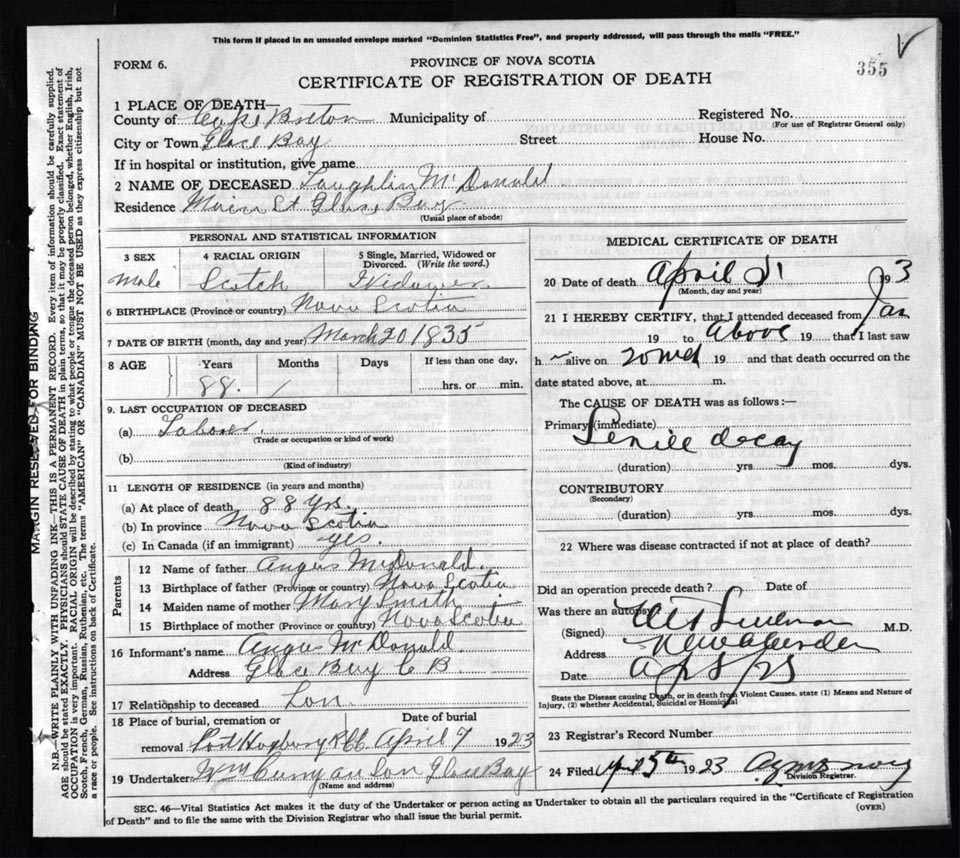 This form if placed in an unsealed envelope marked "Dominion Statistics Free", and properly addressed, will pass through the mails "FREE."
FORM 6.
PROVINCE OF NOVA SCOTIA
355
CERTIFICATE OF REGISTRATION OF DEATH
1 PLACE OF DEATH—
County of Cape Breton Municipality of Registered No.
(For use of Registrar General only)
City or Town Glace Bay Street House No.
If in hospital or institution, give name
2 NAME OF DECEASED Laughlin McDonald
Residence Main St Glace Bay
(Usual place of abode)
PERSONAL AND STATISTICAL INFORMATION
3 SEX 4 RACIAL ORIGIN 5 Single, Married, Widowed or Divorced. (Write the word.)
male Scotch Widower
6 BIRTHPLACE (Province or country) Nova Scotia
7 DATE OF BIRTH (month, day and year) March 20 1835
8 AGE Years Months Days If less than one day,
88. / hrs. or min.
9. LAST OCCUPATION OF DECEASED
(a) Laborer.
(Trade or occupation or kind of work)
(b)
(Kind of industry)
11 LENGTH OF RESIDENCE (in years and months)
(a) At place of death 88 Yrs.
(b) In province Nova Scotia
(c) In Canada (if an immigrant) yes.
Parents
12 Name of father Angus McDonald.
13 Birthplace of father (Province or country) Nova Scotia
14 Maiden name of mother Mary Smith
15 Birthplace of mother (Province or country) Nova Scotia
16 Informant's name Angus McDonald.
Address Glace Bay C B
17 Relationship to deceased Son.
18 Place of burial, cremation or removal Date of burial
Port April 7 1923
19 Undertaker Wm Curry Son Glace Bay
(Name and address)
MEDICAL CERTIFICATE OF DEATH
20 Date of death April 193
(Month, day and year)
21 I HEREBY CERTIFY, that I attended deceased from Jan
19 to above 19 that I last saw
h alive on 19 and that death occurred on the
date stated above, at m.
The CAUSE OF DEATH was as follows:—
Primary (immediate)
Senile decay
(duration) yrs. mos. dys.
CONTRIBUTORY
(Secondary)
(duration) yrs. mos. dys.
22 Where was disease contracted if not at place of death?
Did an operation precede death? Date of
Was there an autopsy
(Signed) M.D.
Address New Aberdeen
Date
State the Disease causing Death, or in death from Violent Causes, state (1) Means and Nature of Injury, (2) whether Accidental, Suicidal or Homicidal
23 Registrar's Record Number
24 Filed April 5th 1923
Division Registrar.
SEC. 46—Vital Statistics Act makes it the duty of the Undertaker or person acting as Undertaker to obtain all the particulars required in the "Certificate of Registration
of Death" and to file the same with the Division Registrar who shall issue the burial permit.
(OVER)
MARGIN RESERVED FOR BINDING
N.B.—WRITE PLAINLY WITH UNFADING INK—THIS IS A PERMANENT RECORD. Every item of information should be carefully supplied.
AGE should be stated EXACTLY. PHYSICIANS should STATE CAUSE OF DEATH in plain terms, so that it may be properly classified. Exact statement of
OCCUPATION is very important. RACIAL ORIGIN will be described by stating to what people or tongue the deceased person belonged, whether English, Irish,
Scotch, French, German, Russian, Ruthenian, etc. The terms "AMERICAN" or "CANADIAN" MUST NOT BE USED as they express citizenship but not
a race or people. See instructions on back of Certificate.